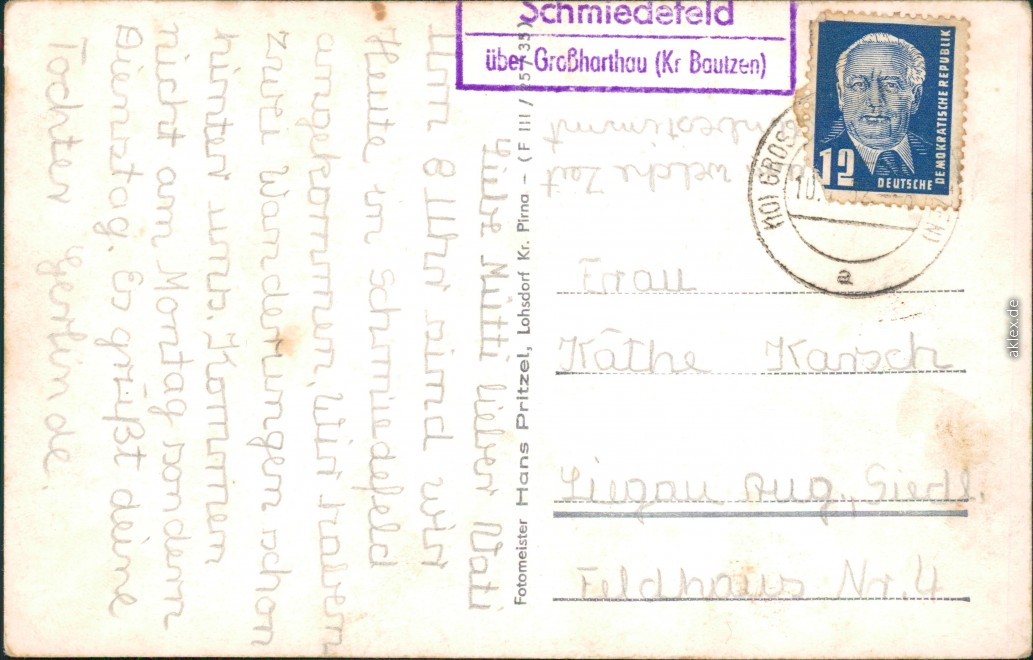 Schmiedefeld
über Großharthau (Kr Bautzen)
12
DEUTSCHE
DEMOKRATISCHE REPUBLIK
(10) GROSS
10.
a
welche Zeit
unbestimmt
Liebe Mutti lieber Vati
Um 8 Uhr sind wir
Heute in Schmiedefeld
angekommen, wir haben
zwei Wanderungen schon
hinter uns. Kommen
nicht am Montag sondern
Dienstag. Es grüßt deine
Tochter Gerlinde.
Fotomeister Hans Pritzel, Lohsdorf Kr. Pirna - (F III / 25 / 35)
Frau
Käthe Karsch
Liegau Aug., Siedl.
Feldhaus Nr. 4
aklex.de